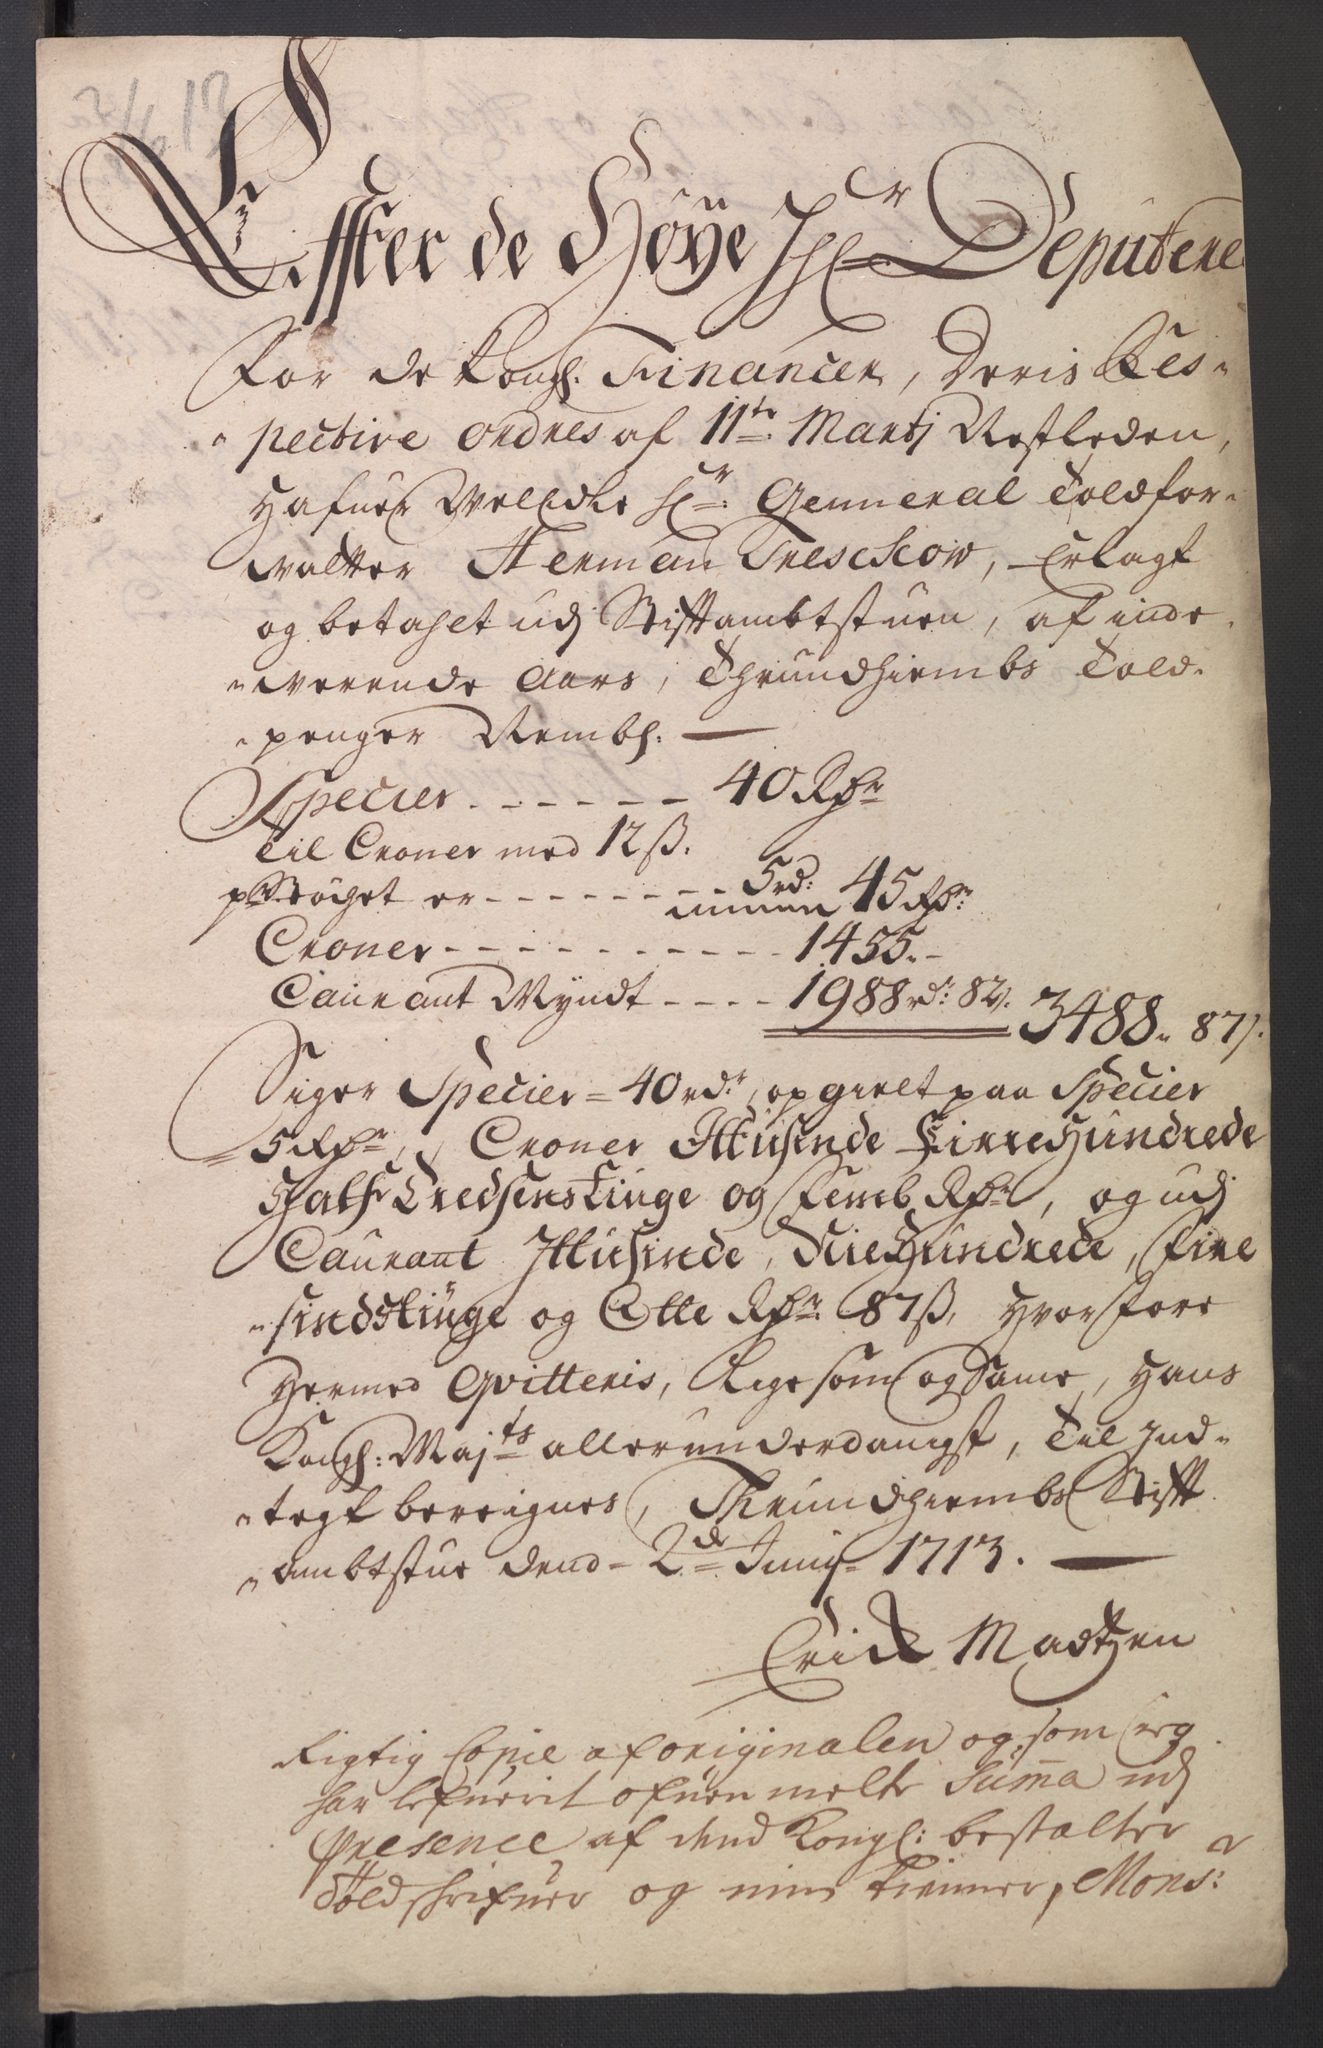 Effter de Høÿe Hr Deputerede
For de Kongl. Financer, Deris Res-
pective Ordres af 11te Martj Nestleden,
Hafuer Velædle Hr: General Toldfor-
valtter Herman Treschow, Erlagt
og betahlt udj Stifftambtstuen, af inde
værende Aars, Thrundhiembs Told-
penger Nembl.
Specier - - - - - - 40 Rdr
Til Croner med 12 ß.
pr Støchet er - - - - - - - 5 rd: 45 Rdr
Croner - - - - - - - - - - 1455. -
Courant Myndt - - - - 1988 rdr: 87. 3488 - 87 ß.
Siger Specier = 40 rdr, opgielt paa Specier
5 Rdr, Croner Ittusinde Firrehundrede
Halftredsenstiuge og Femb Rdr, og udj
Courant Ittusinde, Niehundrede, Fire
sindstiuge og Otte Rdr 87 ß, Hvorfore
Hermed Qvitteris, Lige som og Same, Hans
Kongl: Majts allerunderdanigst, Til Ind-
tegt bereignes, Thrundhiembs Stifft
ambtstue dend 2de Junij 1713.
Erick Madtzen
Rigtig Copie af originalen og som ieg
har lefuerit ofuenmelte Summa udj
Presence af dend Kongl: bestalter
Toldskrifuer og min tienner, Monsr: